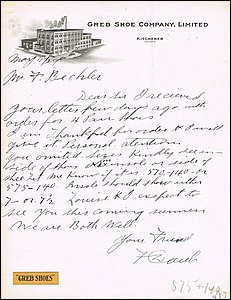 GREB SHOE COMPANY, LIMITED
KITCHENER
Mr F Bechler
Dear Sir I received
your letter few days ago, with
order for 4 Pair Shoes
I am Thankful for order & I will
give it Personal atention
You omited sizes Kindly see in-
side of shoe or insole or side of
shoe Let me Know if it is 570,140 or
575-140. Insole should show either
7- or 7½ Louise & I expect to
see you this coming summer
We are Both Well
Your Friend
"GREB SHOES"